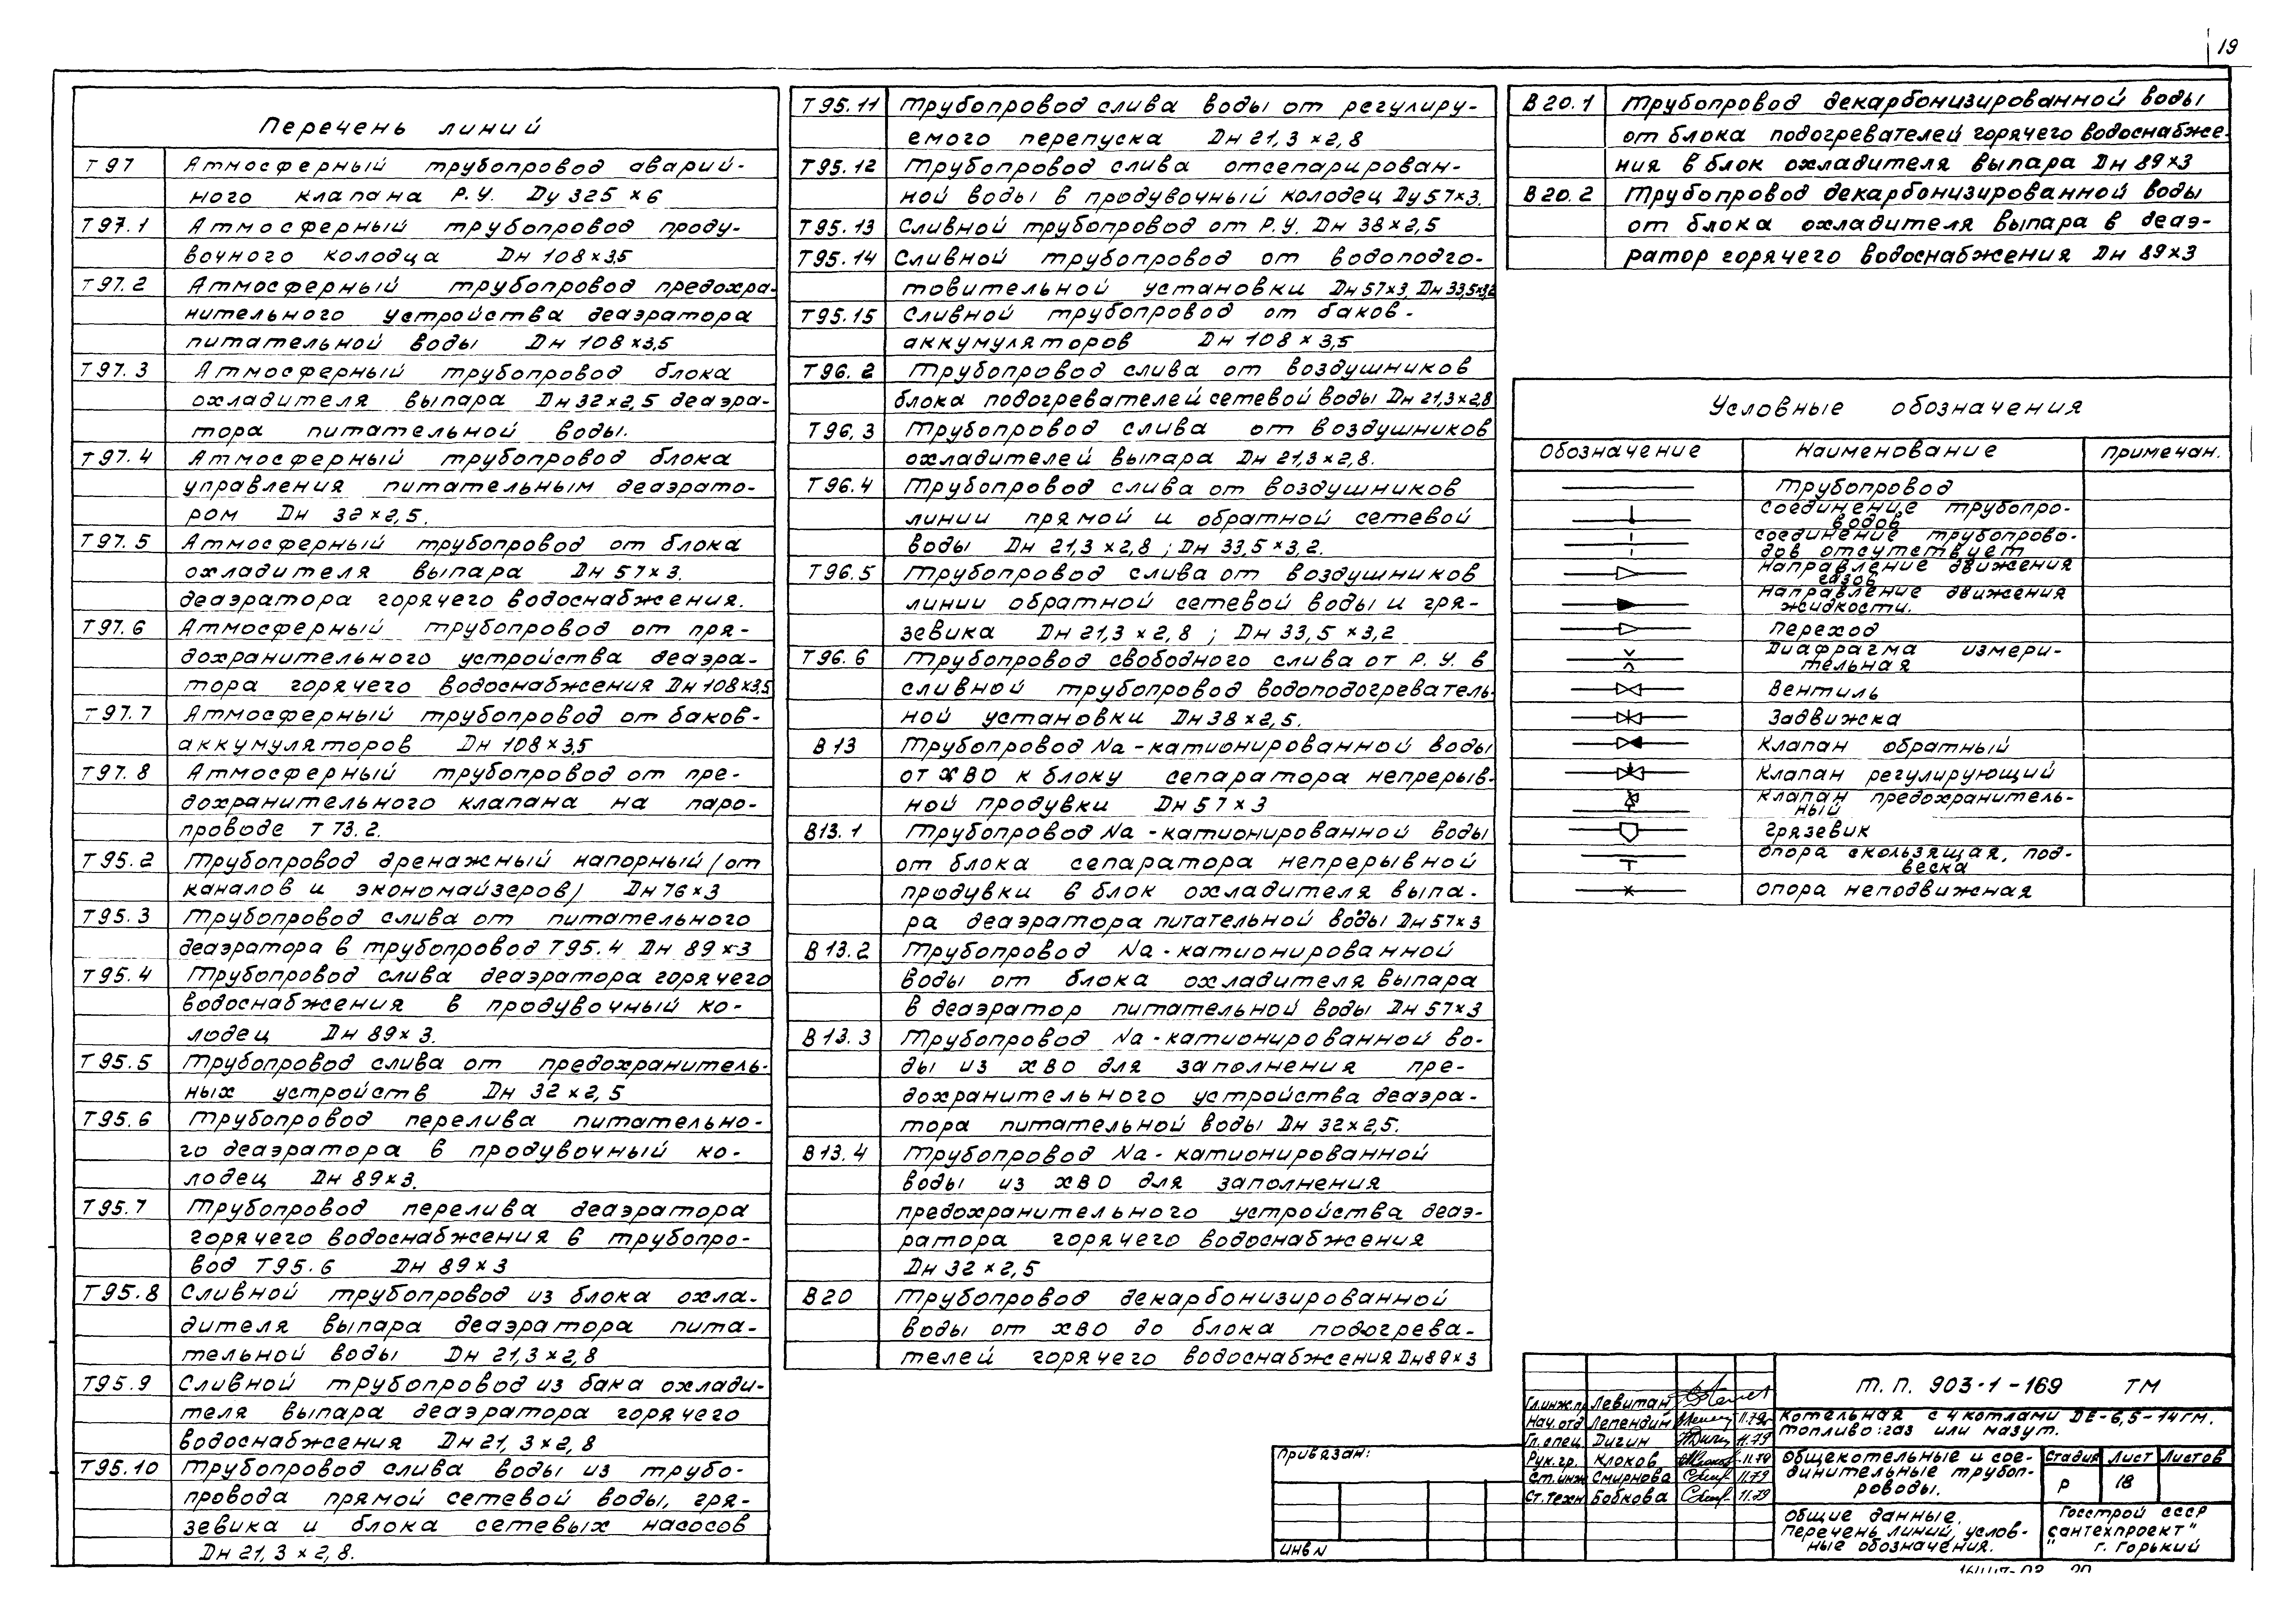 19
Перечень линий
Т97 Атмосферный трубопровод аварий-
ного клапана Р.У. Ду 325×6
Т97.1 Атмосферный трубопровод проду-
вочного колодца Дн 108×3,5
Т97.2 Атмосферный трубопровод предохра-
нительного устройства деаэратора
питательной воды Дн 108×3,5
Т97.3 Атмосферный трубопровод блока
охладителя выпара Дн 32×2,5 деаэра-
тора питательной воды.
Т97.4 Атмосферный трубопровод блока
управления питательным деаэрато-
ром Дн 32×2,5.
Т97.5 Атмосферный трубопровод от блока
охладителя выпара Дн 57×3.
деаэратора горячего водоснабжения.
Т97.6 Атмосферный трубопровод от пря-
дохранительного устройства деаэра-
тора горячего водоснабжения Дн 108×3,5
Т97.7 Атмосферный трубопровод от баков-
аккумуляторов Дн 108×3,5
Т97.8 Атмосферный трубопровод от пре-
дохранительного клапана на паро-
проводе Т 73.2.
Т95.2 Трубопровод дренажный напорный /от
каналов и экономайзеров/ Дн 76×3
Т95.3 Трубопровод слива от питательного
деаэратора в трубопровод Т95.4 Дн 89×3
Т95.4 Трубопровод слива деаэратора горячего
водоснабжения в продувочный ко-
лодец Дн 89×3.
Т95.5 Трубопровод слива от предохранитель-
ных устройств Дн 32×2,5
Т95.6 Трубопровод перелива питательно-
го деаэратора в продувочный ко-
лодец Дн 89×3.
Т95.7 Трубопровод перелива деаэратора
горячего водоснабжения в трубопро-
вод Т95.6 Дн 89×3
Т95.8 Сливной трубопровод из блока охла-
дителя выпара деаэратора пита-
тельной воды Дн 21,3×2,8
Т95.9 Сливной трубопровод из бака охлади-
теля выпара деаэратора горячего
водоснабжения Дн 21,3×2,8
Т95.10 Трубопровод слива воды из трубо-
провода прямой сетевой воды, гря-
зевика и блока сетевых насосов
Дн 21,3×2,8.
Т95.11 Трубопровод слива воды от регулиру-
емого перепуска Дн 21,3×2,8
Т95.12 Трубопровод слива отсепарирован-
ной воды в продувочный колодец Ду 57×3.
Т95.13 Сливной трубопровод от Р.У. Дн 38×2,5
Т95.14 Сливной трубопровод от водоподго-
товительной установки Дн 57×3, Дн 33,5×3,2
Т95.15 Сливной трубопровод от баков-
аккумуляторов Дн 108×3,5
Т96.2 Трубопровод слива от воздушников
блока подогревателей сетевой воды Дн 21,3×2,8
Т96.3 Трубопровод слива от воздушников
охладителей выпара Дн 21,3×2,8.
Т96.4 Трубопровод слива от воздушников
линии прямой и обратной сетевой
воды Дн 21,3×2,8; Дн 33,5×3,2.
Т96.5 Трубопровод слива от воздушников
линии обратной сетевой воды и гря-
зевика Дн 21,3×2,8; Дн 33,5×3,2
Т96.6 Трубопровод свободного слива от Р.У. в
сливной трубопровод водоподогреватель-
ной установки Дн 38×2,5.
В13 Трубопровод Na-катионированной воды
от ХВО к блоку сепаратора непрерыв-
ной продувки Дн 57×3
В13.1 Трубопровод Na-катионированной воды
от блока сепаратора непрерывной
продувки в блок охладителя выпа-
ра деаэратора питательной воды Дн 57×3
В13.2 Трубопровод Na-катионированной
воды от блока охладителя выпара
в деаэратор питательной воды Дн 57×3
В13.3 Трубопровод Na-катионированной во-
ды из ХВО для заполнения пре-
дохранительного устройства деаэра-
тора питательной воды Дн 32×2,5.
В13.4 Трубопровод Na-катионированной
воды из ХВО для заполнения
предохранительного устройства деаэ-
ратора горячего водоснабжения
Дн 32×2,5
В20 Трубопровод декарбонизированной
воды от ХВО до блока подогрева-
телей горячего водоснабжения Дн 89×3
В20.1 Трубопровод декарбонизированной воды
от блока подогревателей горячего водоснабже-
ния в блок охладителя выпара Дн 89×3
В20.2 Трубопровод декарбонизированной воды
от блока охладителя выпара в деаэ-
ратор горячего водоснабжения Дн 89×3
Условные обозначения
Обозначение Наименование Примечан.
Трубопровод
Соединение трубопро-
водов
Соединение трубопрово-
дов отсутствует
Направление движения
газов
Направление движения
жидкости.
Переход
Диафрагма измери-
тельная
Вентиль
Задвижка
Клапан обратный
Клапан регулирующий
Клапан предохранитель-
ный
Грязевик
Опора скользящая, под-
веска
Опора неподвижная
Привязан:
ИНВ N
Гл.инж.пр Левитан
Нач.отд Лепендин 11.79
Гл.спец Дигин 11.79
Рук.гр. Клоков 11.79
Ст.инж Смирнова 11.79
Ст.техн Бобкова 11.79
Т.П. 903-1-169 ТМ
Котельная с 4 котлами ДЕ-6,5-14ГМ.
Топливо: газ или мазут.
Общекотельные и сое-
динительные трубоп-
роводы.
Стадия Лист Листов
Р 18
Общие данные.
Перечень линий, услов-
ные обозначения.
Госстрой СССР
сантехпроект"
" г. Горький